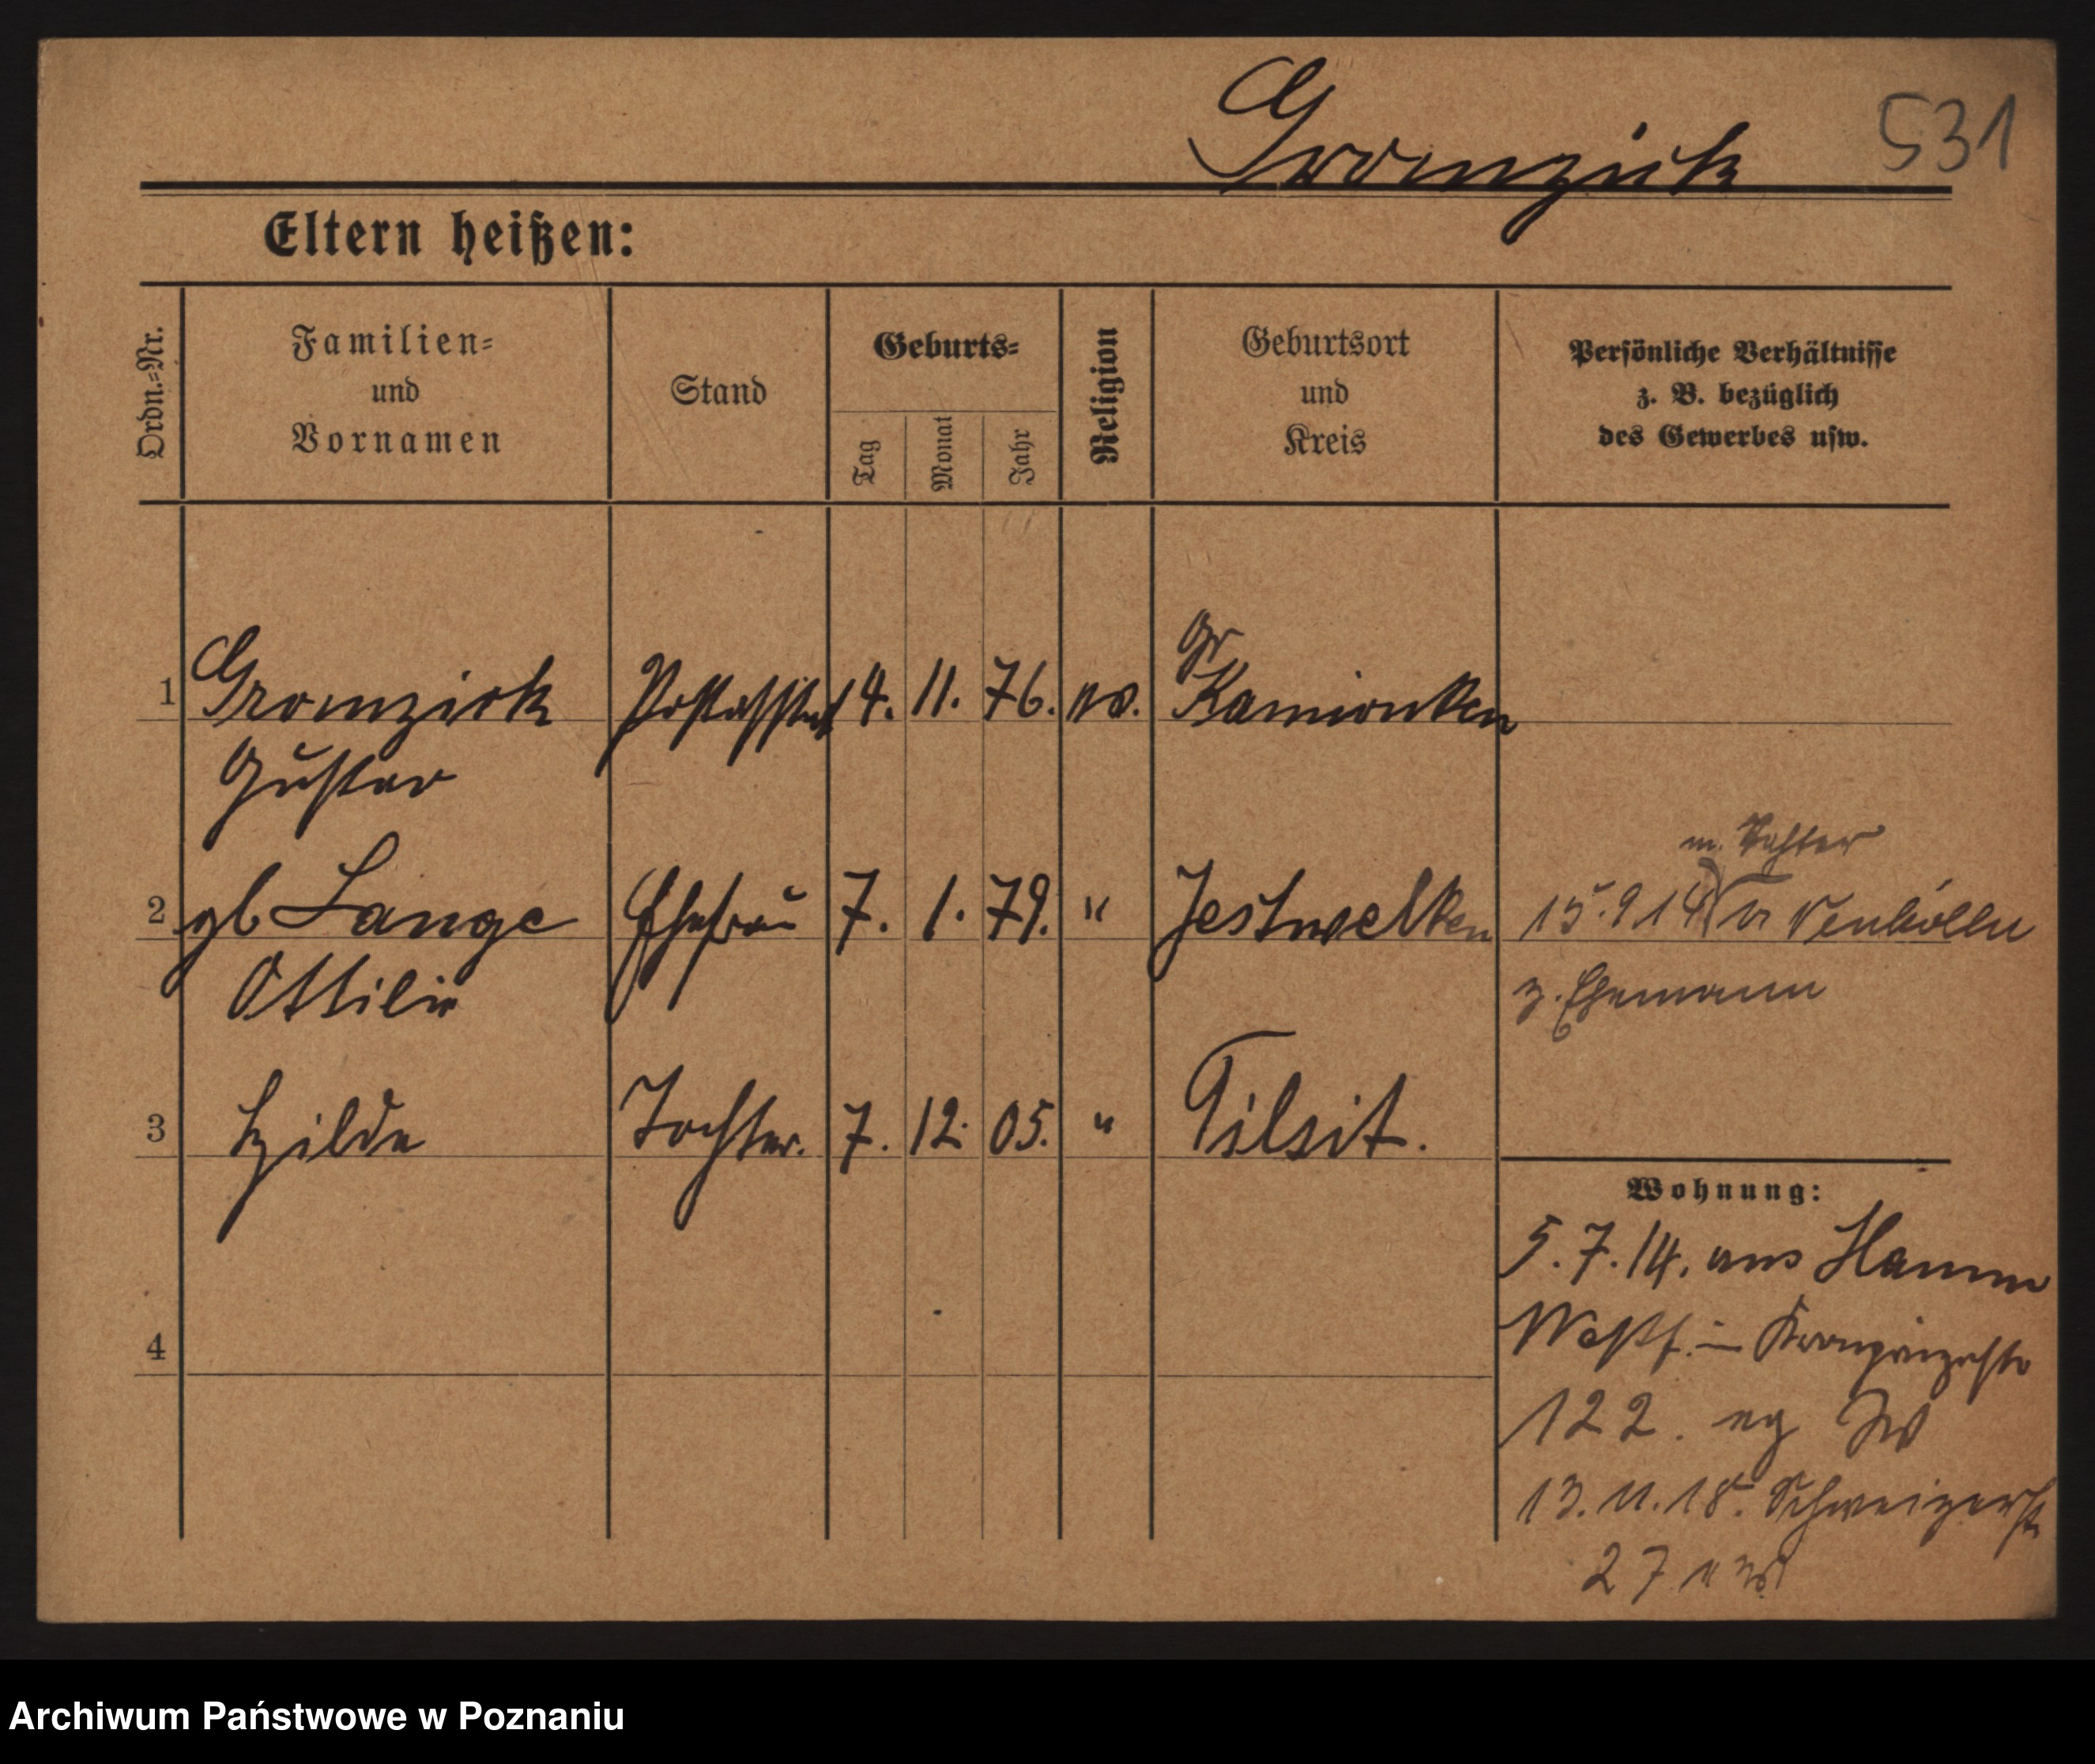 Gromzick 531
Eltern heißen:
Ordn.=Nr.
Familien=
und
Vornamen
Stand
Geburts=
Tag
Monat
Jahr
Religion
Geburtsort
und
Kreis
Persönliche Verhältnisse
z. B. bezüglich
des Gewerbes usw.
Gr
1 Gromzick Postassist 14. 11. 76. ev. Kamionken
Gustav
m. Tochter
2 gb Lange Ehefrau 7. 1. 79. " Jestwethen 15.9 14
Ottilie z. Ehemann
3 Hilde Tochter. 7. 12. 05. " Tilsit.
Wohnung:
5.7.14. aus Hamm
Westf. in Kronprinzestr
4
122.
13.11.18. Schweizerstr
27